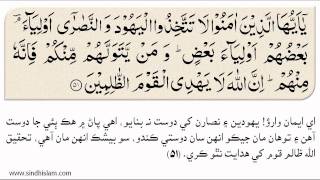 يٰٓاَيُّهَا الَّذِيْنَ اٰمَنُوْا لَا تَتَّخِذُوا الْيَهُوْدَ وَ النَّصٰرٰٓى اَوْلِيَآءَ ۘ
بَعْضُهُمْ اَوْلِيَآءُ بَعْضٍ ؕ وَ مَنْ يَّتَوَلَّهُمْ مِّنْكُمْ فَاِنَّهٗ
مِنْهُمْ ؕ اِنَّ اللّٰهَ لَا يَهْدِي الْقَوْمَ الظّٰلِمِيْنَ ﴿۵۱﴾
اي ايمان وارؤ! يهودين ۽ نصارن کي دوست نہ بنايو، اھي پاڻ ۾ ھڪ ٻئي جا دوست
آھن ۽ توھان مان جيڪو انھن سان دوستي ڪندو، سو بيشڪ انھن مان آھي، تحقيق
الله ظالم قوم کي ھدايت نٿو ڪري. (۵۱)
www.sindhislam.com